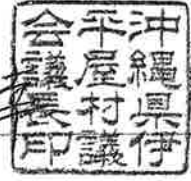 沖縄県伊
平屋村議
会議長印